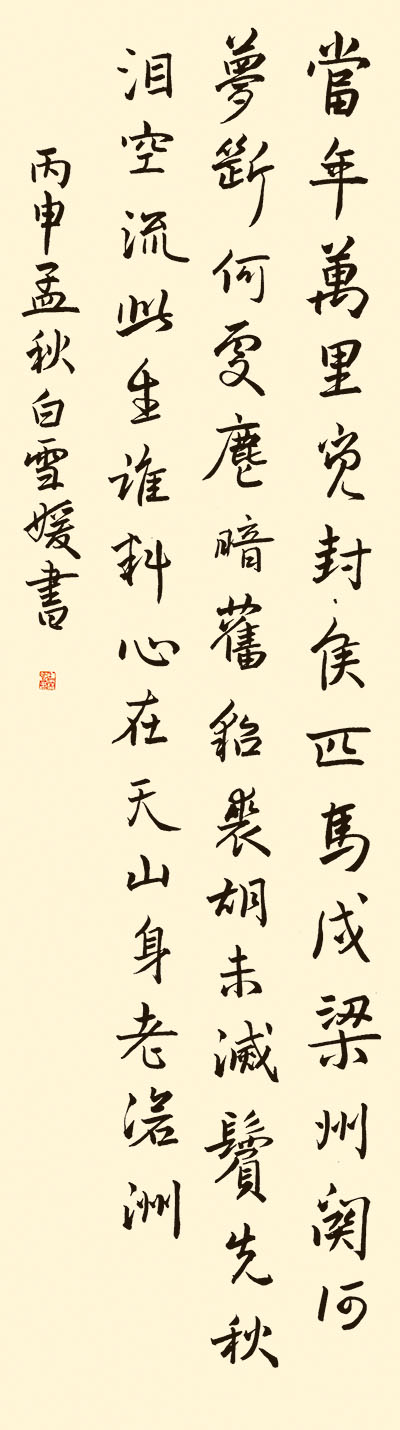 當年萬里覓封侯匹馬戍梁州關河
夢斷何處塵暗舊貂裘胡未滅鬢先秋
泪空流此生誰料心在天山身老滄洲
丙申孟秋白雪媛書